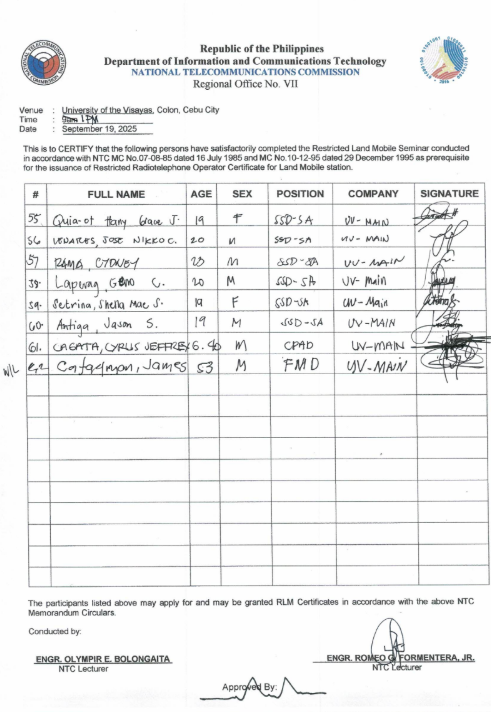 Republic of the Philippines
Department of Information and Communications Technology
NATIONAL TELECOMMUNICATIONS COMMISSION
Regional Office No. VII
Venue : University of the Visayas, Colon, Cebu City
Time : 1PM
Date : September 19, 2025
This is to CERTIFY that the following persons have satisfactorily completed the Restricted Land Mobile Seminar conducted
in accordance with NTC MC No.07-08-85 dated 16 July 1985 and MC No.10-12-95 dated 29 December 1995 as prerequisite
for the issuance of Restricted Radiotelephone Operator Certificate for Land Mobile station.
# FULL NAME AGE SEX POSITION COMPANY SIGNATURE
55 Quia-ot Hany Grace J. 19 F SSD-SA UV-MAIN
56 VENARES, JOSE NIKKO C. 20 M SSD-SA UV-MAIN
57 RAMA, CYDNEY 23 M SSD-SA UV-MAIN
58. Lapuag, Geno C. 20 M SSD-SA UV-Main
59. Setrina, Shella Mae S. 19 F SSD-SA UV-Main
60. Antiga, Jason S. 19 M SSD-SA UV-MAIN
61. CYRUS JEFFREY G. 40 M CPAD UV-MAIN
N/L 62 James 53 M FMD UV-MAIN
The participants listed above may apply for and may be granted RLM Certificates in accordance with the above NTC
Memorandum Circulars.
Conducted by:
ENGR. OLYMPIR E. BOLONGAITA ENGR. ROMEO G. FORMENTERA, JR.
NTC Lecturer NTC Lecturer
Approved By: